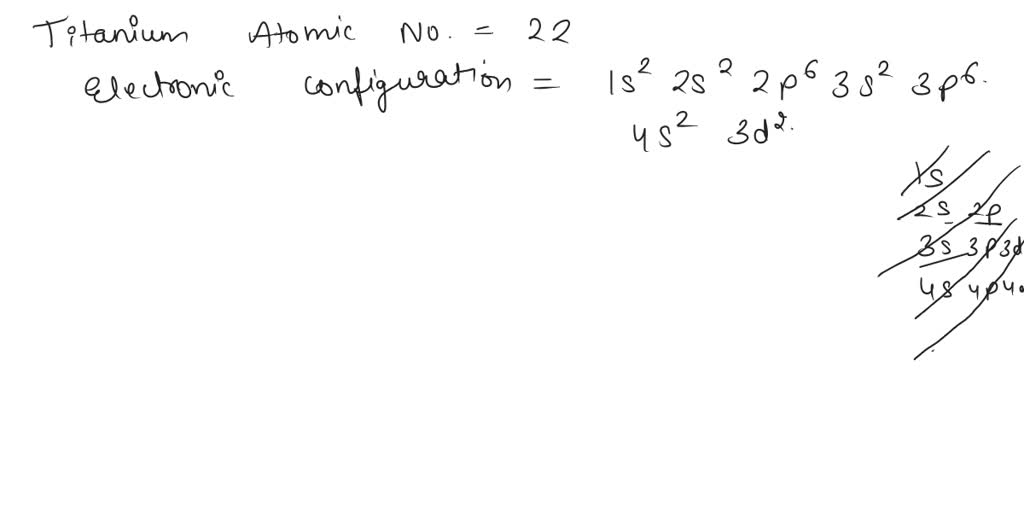 Titanium Atomic No. = 22
Electronic configuration = 1s² 2s² 2p⁶ 3s² 3p⁶.
4s² 3d².
1s
2s 2p
3s 3p 3d
4s 4p 4